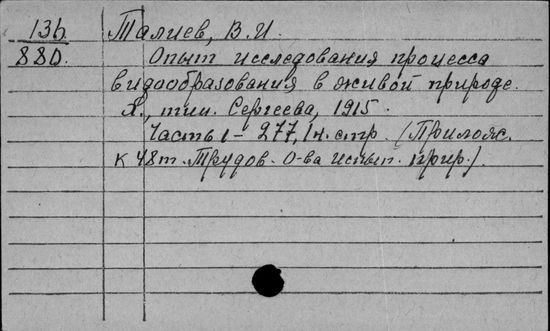 13б Талиев, В.И.
880. Опыт исследования процесса
видообразования в живой природе.
Х., тип. Сергеева, 1915.
Часть 1 – 277, 1 н. стр. (Прилож.
к 48 т. Трудов. О-ва испыт. прир.).